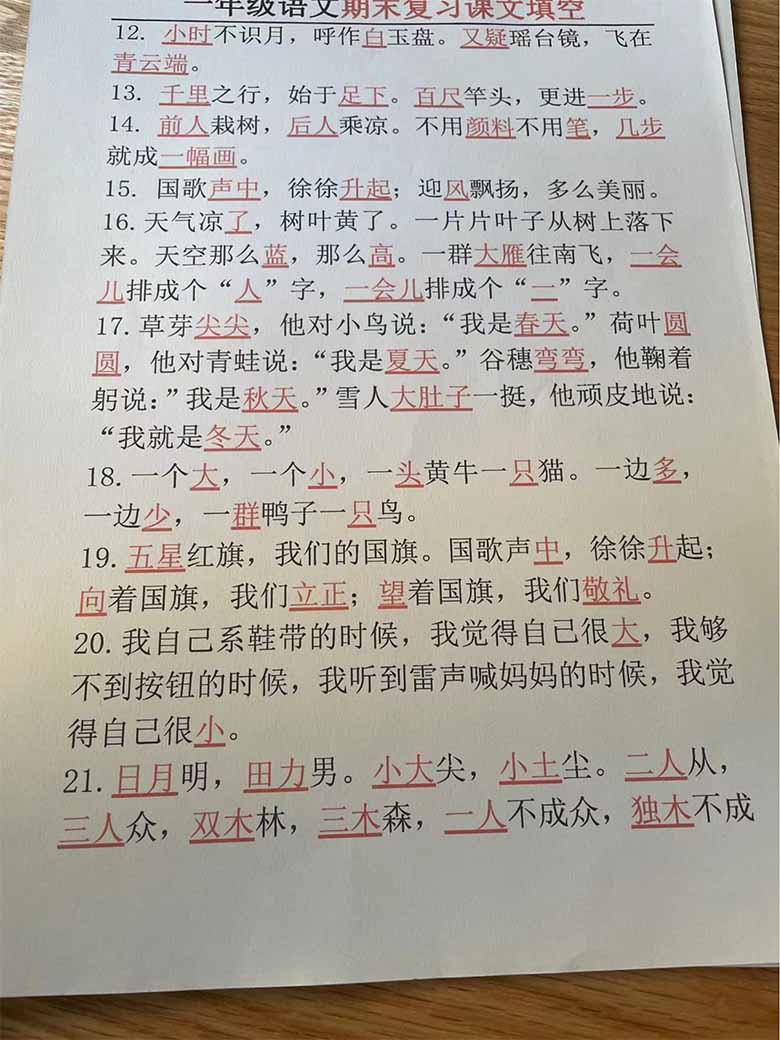 一年级语文期末复习课文填空
12. 小时不识月，呼作白玉盘。又疑瑶台镜，飞在
青云端。
13. 千里之行，始于足下。百尺竿头，更进一步。
14. 前人栽树，后人乘凉。不用颜料不用笔，几步
就成一幅画。
15. 国歌声中，徐徐升起；迎风飘扬，多么美丽。
16. 天气凉了，树叶黄了。一片片叶子从树上落下
来。天空那么蓝，那么高。一群大雁往南飞，一会
儿排成个“人”字，一会儿排成个“一”字。
17. 草芽尖尖，他对小鸟说：“我是春天。”荷叶圆
圆，他对青蛙说：“我是夏天。”谷穗弯弯，他鞠着
躬说：”我是秋天。”雪人大肚子一挺，他顽皮地说：
“我就是冬天。”
18. 一个大，一个小，一头黄牛一只猫。一边多，
一边少，一群鸭子一只鸟。
19. 五星红旗，我们的国旗。国歌声中，徐徐升起；
向着国旗，我们立正；望着国旗，我们敬礼。
20. 我自己系鞋带的时候，我觉得自己很大，我够
不到按钮的时候，我听到雷声喊妈妈的时候，我觉
得自己很小。
21. 日月明，田力男。小大尖，小土尘。二人从，
三人众，双木林，三木森，一人不成众，独木不成